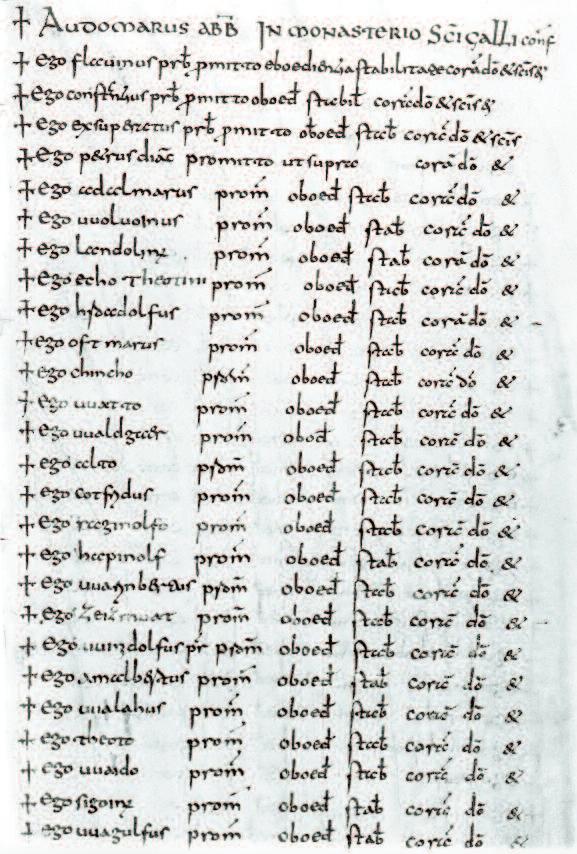 ✝ AUDOMARUS ABB IN MONASTERIO SCI GALLI conf
✝ ego flavinus prb pmitto eboedienzia stabilitate corā dō & scis &
✝ ego constanzius prb pmitto oboed stabil corā dō & scis &
✝ ego exsuperatus prb pmitto oboed stab corā dō & scis
✝ ego petrus diac promitto ut supra corā dō &
✝ ego adalmarus prom oboed stab corā dō &
✝ ego uuoluoinus prom oboed stab corā dō &
✝ ego landolinz prom oboed stab corā dō &
✝ ego echo theotinu prom oboed stab corā dō &
✝ ego hroadolfus prom oboed stab corā dō &
✝ ego oftmarus prom oboed stab corā dō &
✝ ego chincho prom oboed stab corā dō &
✝ ego uuatto prom oboed stab corā dō &
✝ ego uualdgaer prom obod stab corā dō &
✝ ego alto prom oboed stab corā dō &
✝ ego cotfridus prom oboed stab corā dō &
✝ ego raginolfo prom oboed stab corā dō &
✝ ego hapinolf prom oboed stab corā dō &
✝ ego uuarinbertus prom oboed stab corā dō &
✝ ego prom oboed stab corā dō &
✝ ego pr prom oboed stab corā dō &
✝ ego amalbertus prom oboed stab corā dō &
✝ ego uualahus prom oboed stab corā dō &
✝ ego theoto prom oboed stab corā dō &
✝ ego uualdo prom oboed stab corā dō &
✝ ego sigoinz prom oboed stab corā dō &
✝ ego uuagulfus prom oboed stab corā dō &